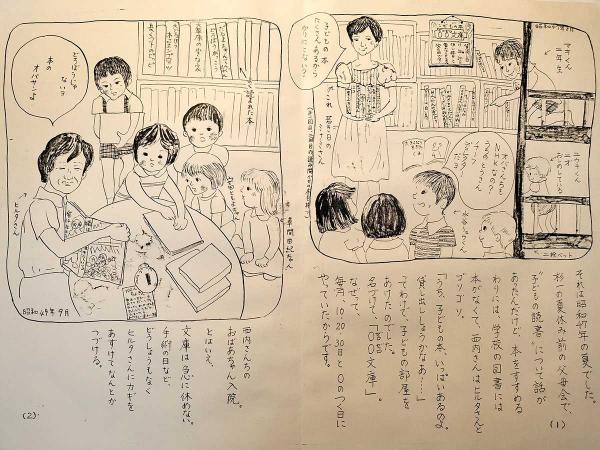 昭和47年7月8日
マキくん
二年生
子どもの本
たくさんあるから
かりにこない？
オバさんち
NHKなの？
うちのとうさん
ディレクター
だヨ
二段ベット
それは昭和47年の夏でした。
杉一の夏休み前の父母会で、
“子どもの読書”について話が
あったんだけど、本をすすめる
わりには、学校の図書には
本がなくて、西内さんはヒルタさんと
ブツブツ。
「うち、子どもの本、いっぱいあるのよ。
貸し出ししようかなあ……」
ってわけで、子どもの部屋を
あけたのでした。
名づけて、「○○文庫」。
なぜって、
毎月、10・20・30日と0のつく日に
やっていたからです。
(1)
どろぼうじゃ
ないヨ
本の
オバサンよ
ヒルタさん
よく読まれた本
昭和49年9月
西内さんちの
おばあちゃん入院。
とはいえ、
文庫は急に休めない。
手術の日など、
どうしょうもなく
ヒルタさんにカギを
あずけてなんとか
つづける。
(2)